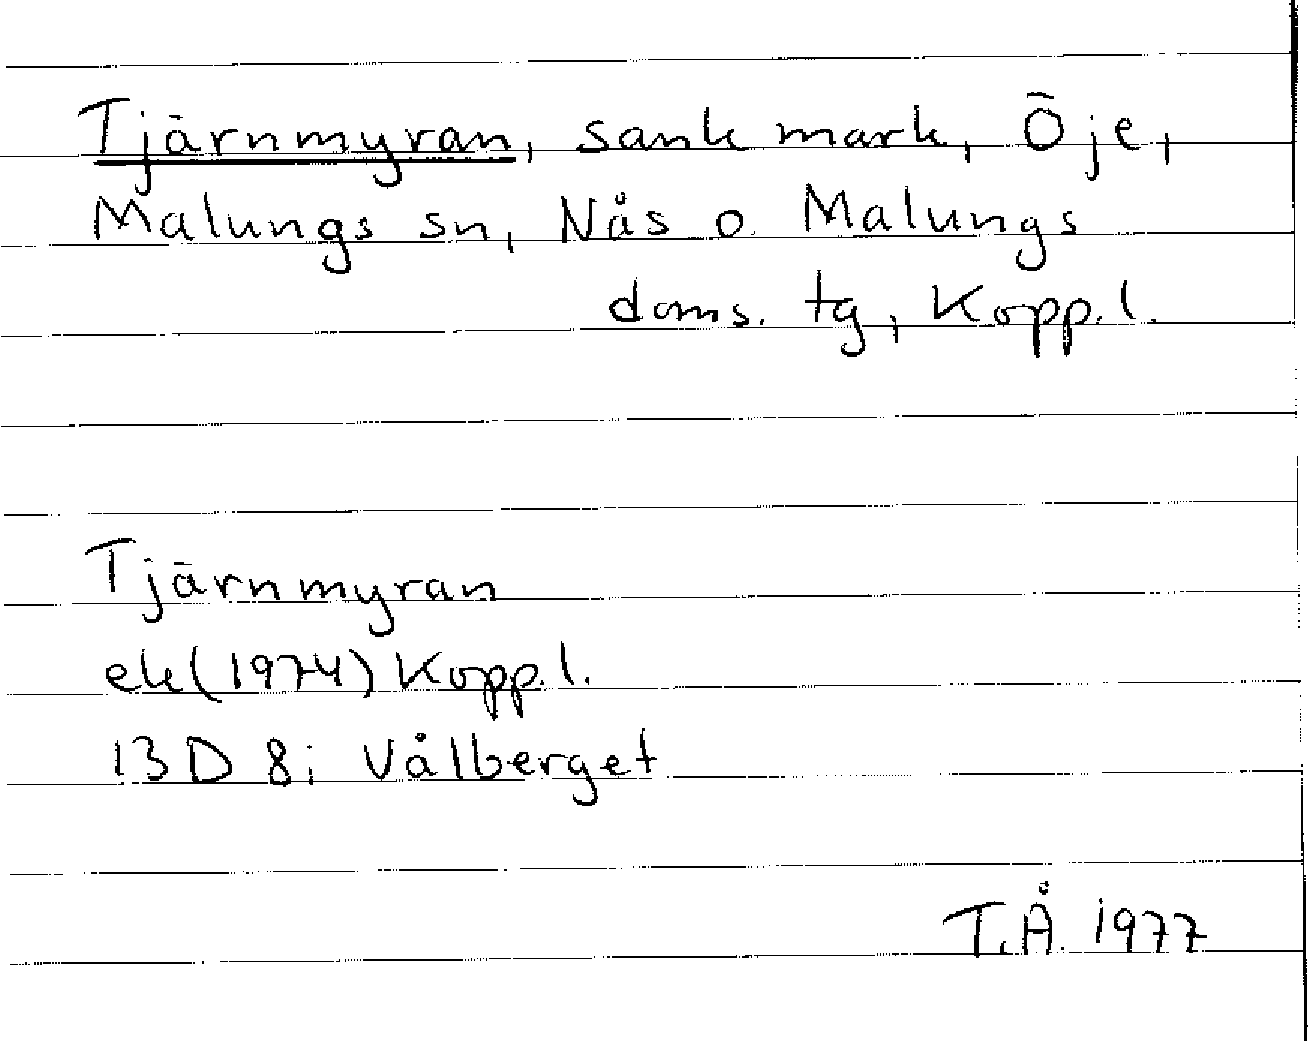 Tjärnmyran, sank mark, Öje,
Malungs sn, Nås o. Malungs
doms. tg, Kopp.l.
Tjärnmyran
ek (1974) Kopp.l.
13D 8i Vålberget
T.Å. 1977